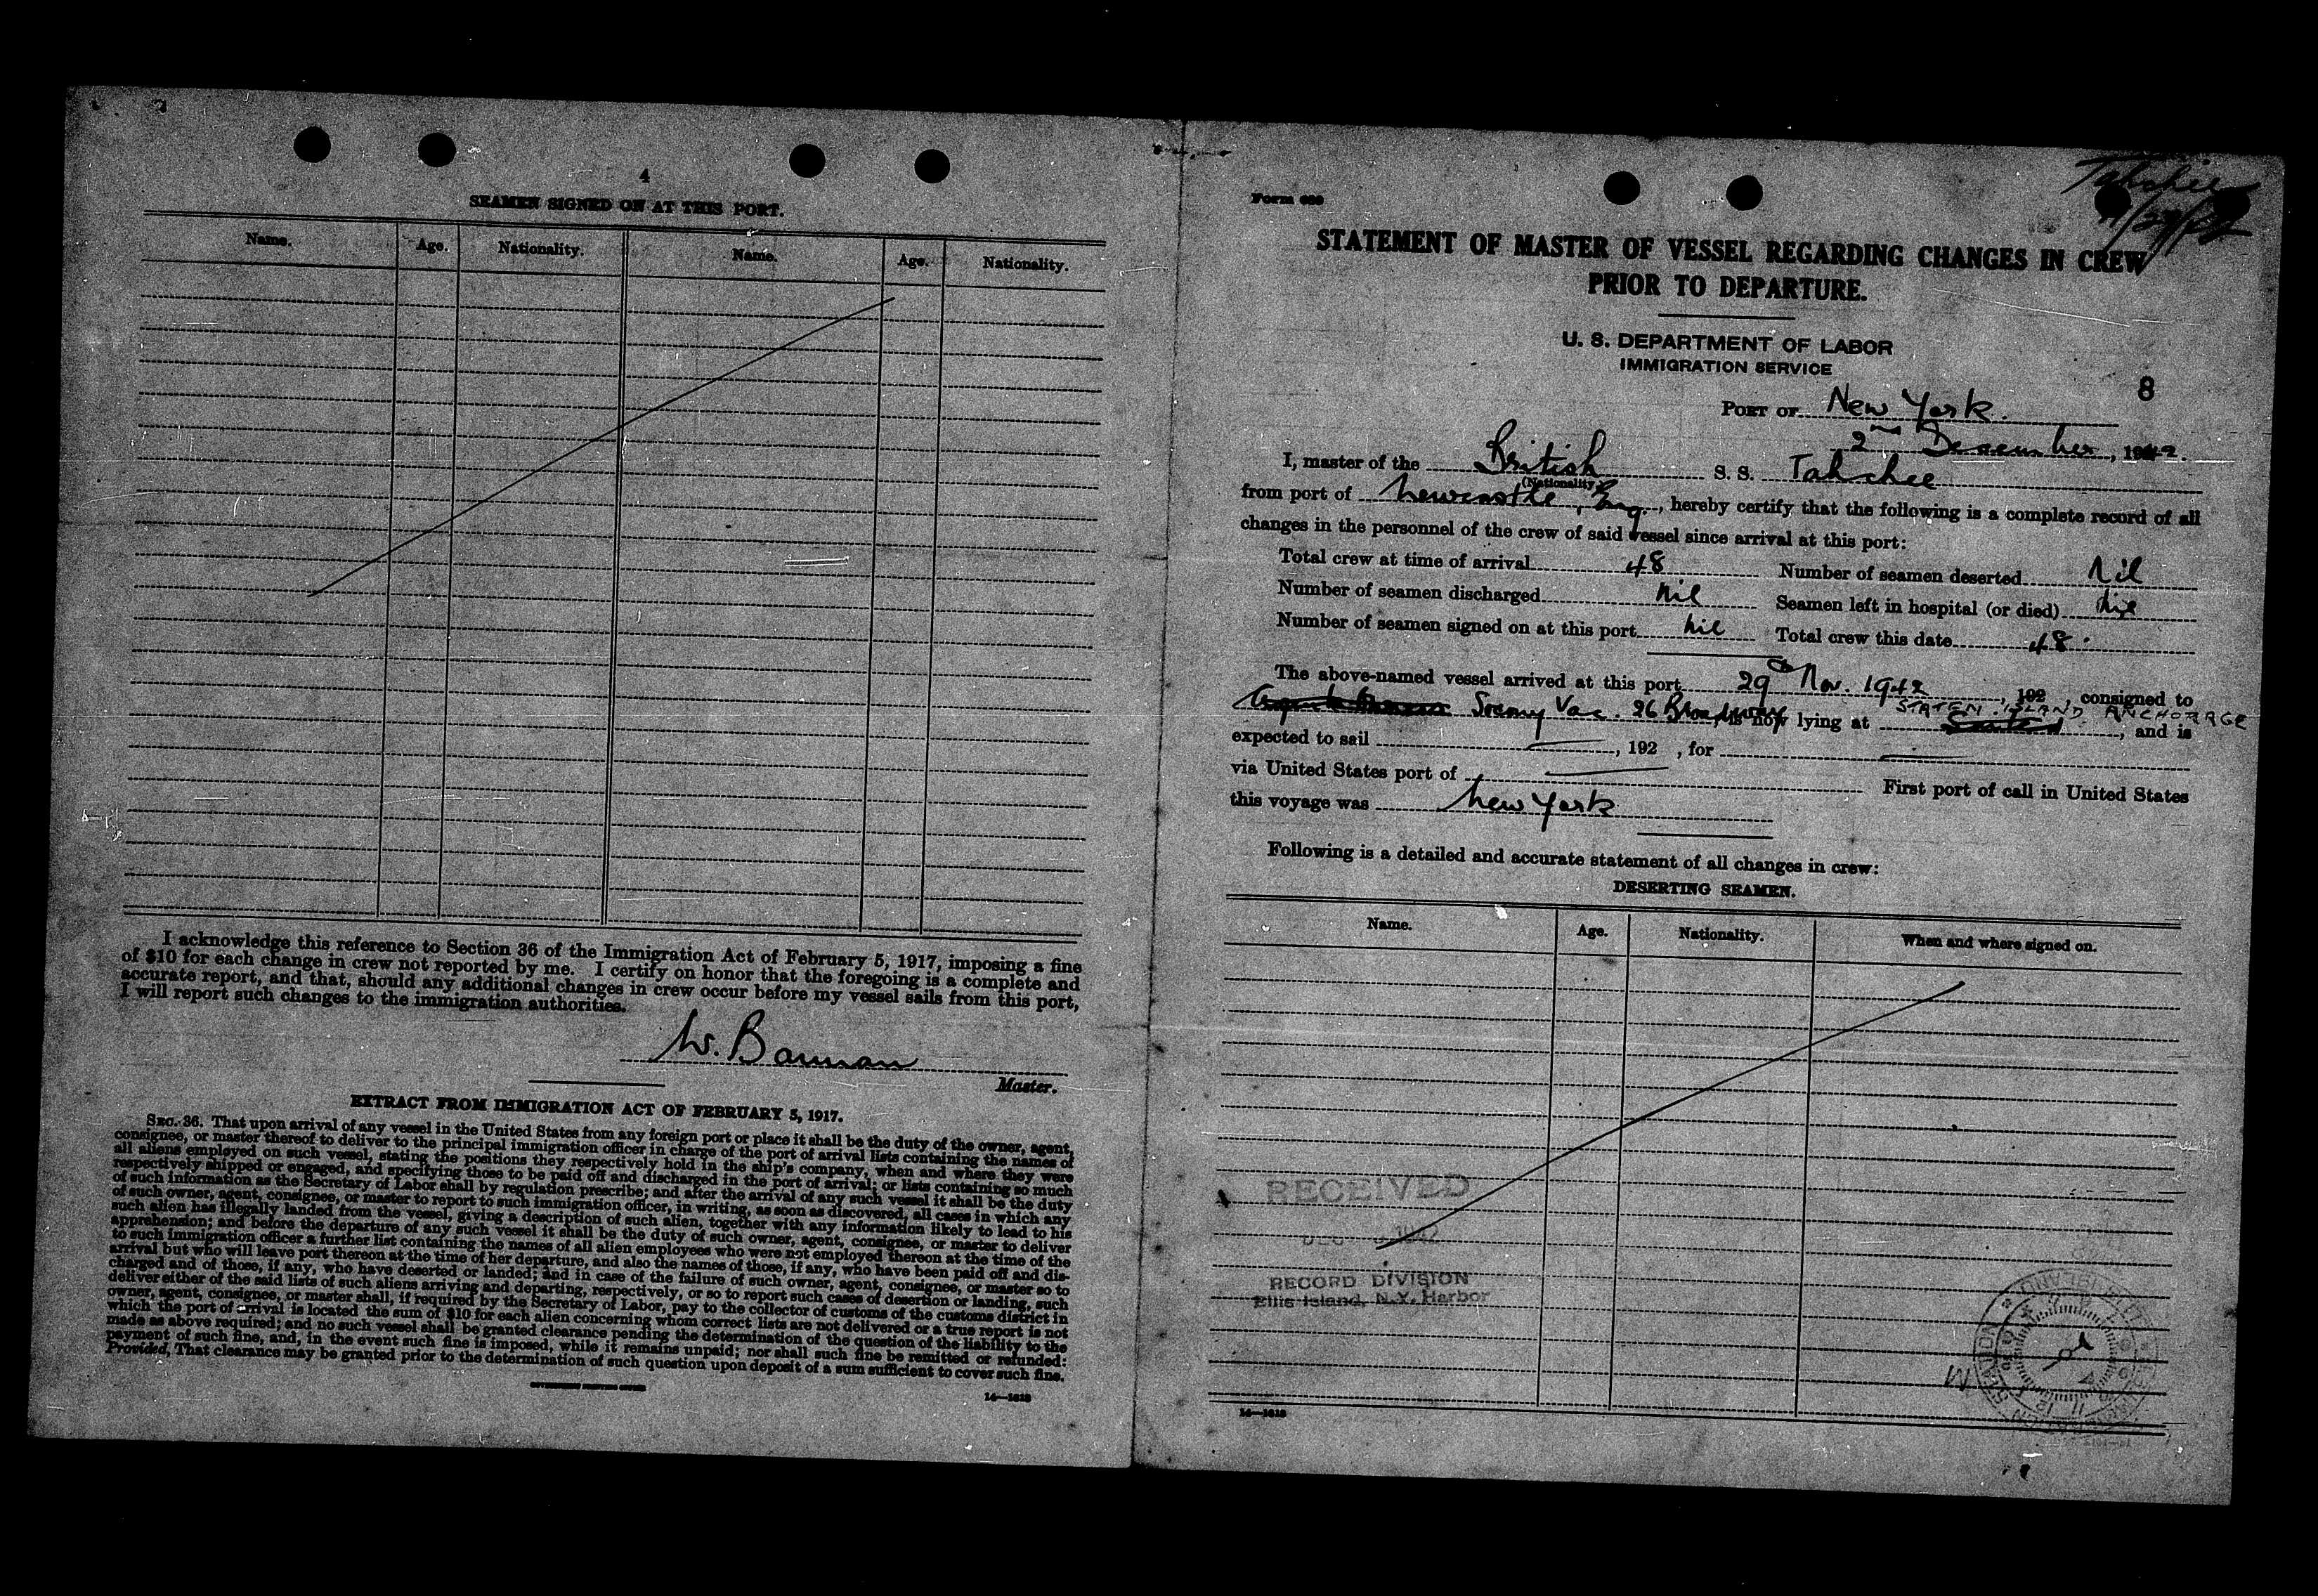 4
SEAMEN SIGNED ON AT THIS PORT.
Name. Age. Nationality. Name. Age. Nationality.
I acknowledge this reference to Section 36 of the Immigration Act of February 5, 1917, imposing a fine
of $10 for each change in crew not reported by me. I certify on honor that the foregoing is a complete and
accurate report, and that, should any additional changes in crew occur before my vessel sails from this port,
I will report such changes to the immigration authorities.
W. Bannan
Master.
EXTRACT FROM IMMIGRATION ACT OF FEBRUARY 5, 1917.
SEC. 36. That upon arrival of any vessel in the United States from any foreign port or place it shall be the duty of the owner, agent,
consignee, or master thereof to deliver to the principal immigration officer in charge of the port of arrival lists containing the names of
all aliens employed on such vessel, stating the positions they respectively hold in the ship's company, when and where they were
respectively shipped or engaged, and specifying those to be paid off and discharged in the port of arrival; or lists containing so much
of such information as the Secretary of Labor shall by regulation prescribe; and after the arrival of any such vessel it shall be the duty
of such owner, agent, consignee, or master to report to such immigration officer, in writing, as soon as discovered, all cases in which any
such alien has illegally landed from the vessel, giving a description of such alien, together with any information likely to lead to his
apprehension; and before the departure of any such vessel it shall be the duty of such owner, agent, consignee, or master to deliver
to such immigration officer a further list containing the names of all alien employees who were not employed thereon at the time of the
arrival but who will leave port thereon at the time of her departure, and also the names of those, if any, who have been paid off and dis-
charged and of those, if any, who have deserted or landed; and in case of the failure of such owner, agent, consignee, or master so to
deliver either of the said lists of such aliens arriving and departing, respectively, or so to report such cases of desertion or landing, such
owner, agent, consignee, or master shall, if required by the Secretary of Labor, pay to the collector of customs of the customs district in
which the port of arrival is located the sum of $10 for each alien concerning whom correct lists are not delivered or a true report is not
made as above required; and no such vessel shall be granted clearance pending the determination of the question of the liability to the
payment of such fine, and, in the event such fine is imposed, while it remains unpaid; nor shall such fine be remitted or refunded:
Provided, That clearance may be granted prior to the determination of such question upon deposit of a sum sufficient to cover such fine.
GOVERNMENT PRINTING OFFICE
14—1618
Tahchee
Form 689
STATEMENT OF MASTER OF VESSEL REGARDING CHANGES IN CREW
PRIOR TO DEPARTURE.
U. S. DEPARTMENT OF LABOR
IMMIGRATION SERVICE
8
PORT OF New York.
2nd December, 1942.
I, master of the British S. S. Tahchee
(Nationality)
from port of Newcastle, Eng., hereby certify that the following is a complete record of all
changes in the personnel of the crew of said vessel since arrival at this port:
Total crew at time of arrival 48 Number of seamen deserted Nil
Number of seamen discharged Nil Seamen left in hospital (or died) Nil
Number of seamen signed on at this port Nil Total crew this date 48.
The above-named vessel arrived at this port 29th Nov. 1942, 192 , consigned to
Socony Vac. 26 Broadway, is now lying at STATEN ISLAND ANCHORAGE, and is
expected to sail , 192 , for
via United States port of First port of call in United States
this voyage was New York
Following is a detailed and accurate statement of all changes in crew:
DESERTING SEAMEN.
Name. Age. Nationality. When and where signed on.
RECEIVED
DEC
RECORD DIVISION
Ellis Island, N.Y. Harbor
14—1618